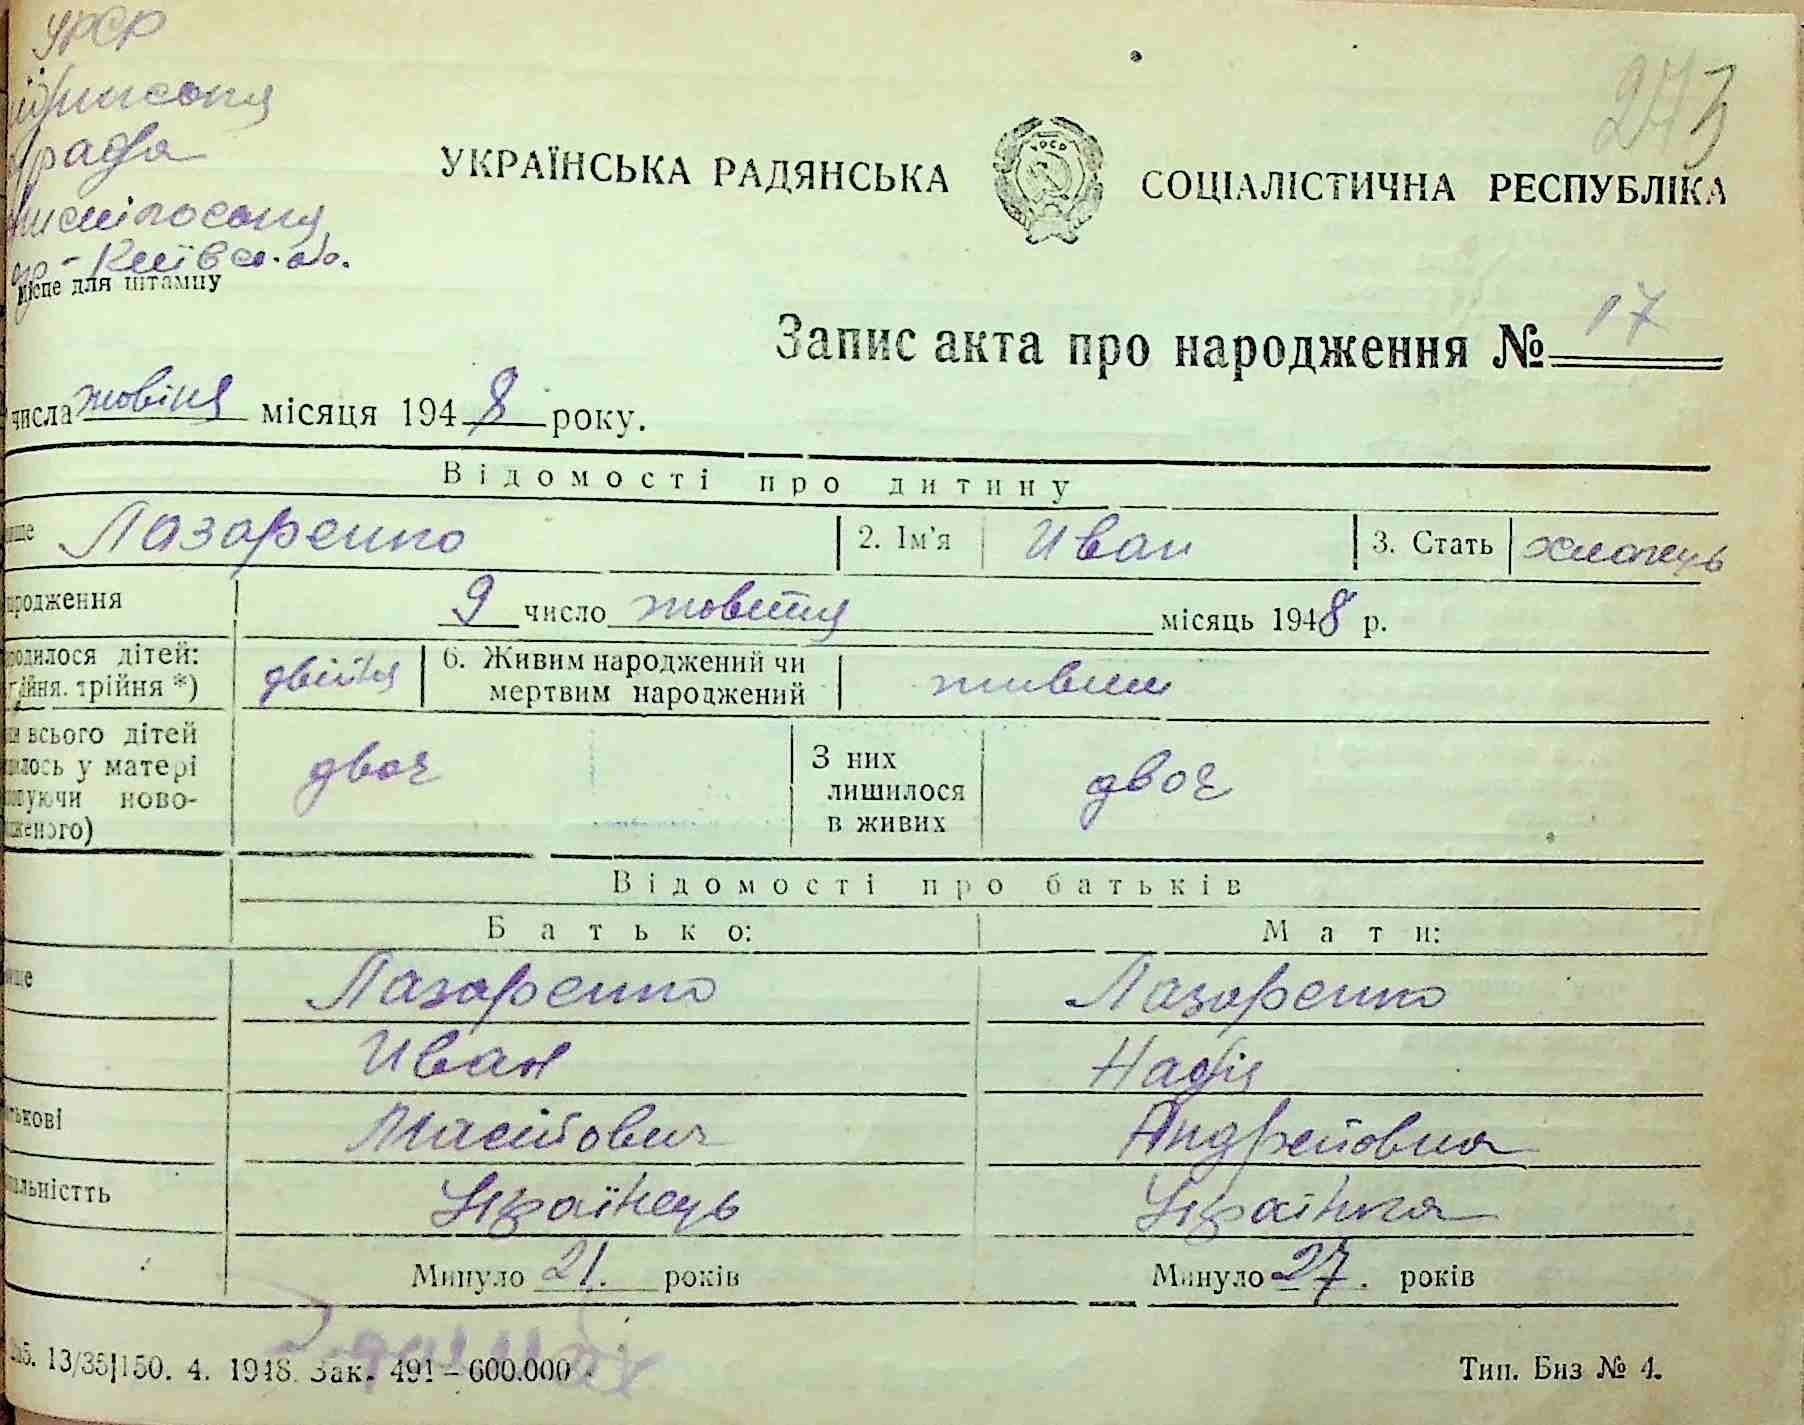 УРСР
рада
Київск. об.
місце для штампу
273
УКРАЇНСЬКА РАДЯНСЬКА СОЦІАЛІСТИЧНА РЕСПУБЛІКА
УРСР
Запис акта про народження № 17
числа жовтня місяця 1948 року.
Відомості про дитину
Лазаренко 2. Ім'я Иван 3. Стать хлопець
народження 9 число жовтня місяць 1948 р.
дітей: двійня 6. Живим народжений чи
трійня *) мертвим народжений живим
всього дітей двоє З них двоє
у матері лишилося
ново- в живих
Відомості про батьків
Батько: Мати:
Лазаренко Лазаренко
Иван Надія
Андреївна
Українець Українка
Минуло 21. років Минуло 27. років
13/35|150. 4. 1948. Зак. 491 – 600.000 Тип. Биз № 4.